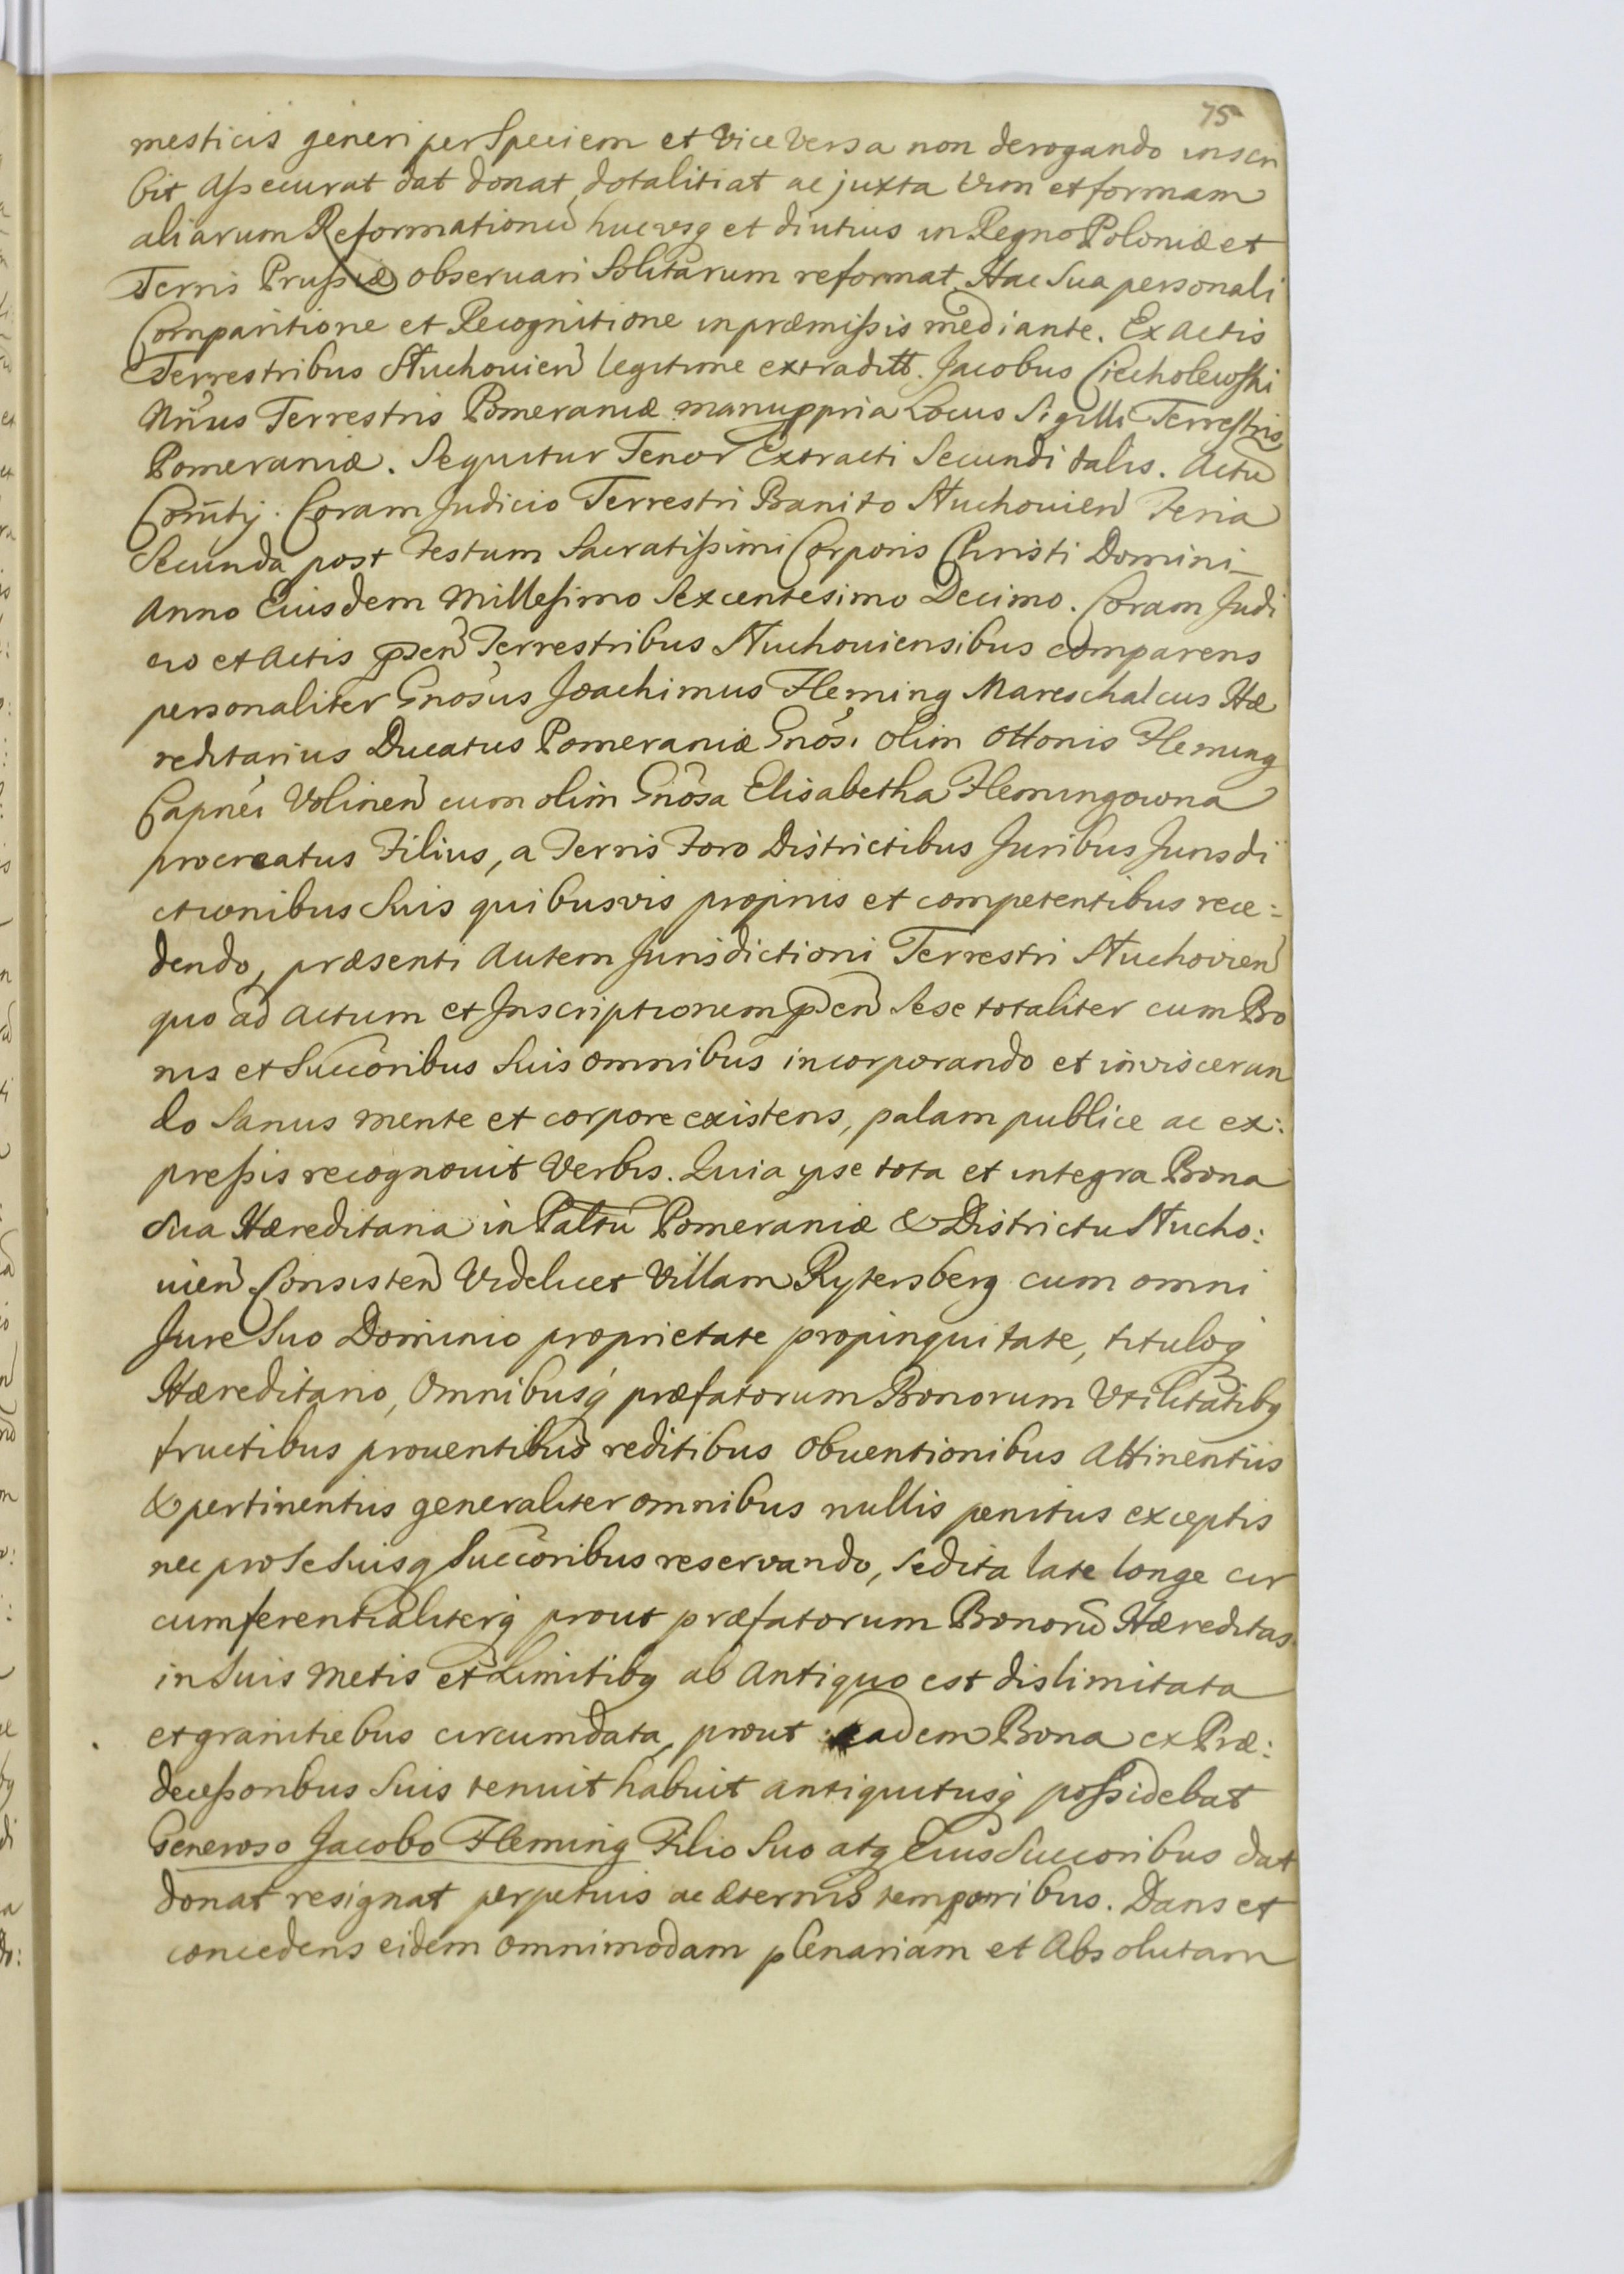 75
mesticis generi per Speciem et Vice Versa non derogando inscri
bit Assecurat dat donat dotalitiat ac juxta Vim et formam
aliarum Reformationū hucusq et diutius in Regno Poloniæ et
Terris Prussiæ observari Solitarum reformat. Hac Sua personali
Comparitione et Recognitione in præmissis mediante. Ex Actis
Terrestribus Stuchovien̄ legitime extraditt. Jacobus Ciecholewski
Nr̃ius Terrestris Pomeraniæ manuppria Locus Sigilli Terrestris
Pomeraniæ. Sequitur Tenor Extracti Secundi talis. Actū
Com̄tỹ. Coram Judicio Terrestri Banito Stuchovien̄ Feria
Secunda post Festum Sacratissimi Corporis Christi Domini
Anno Eiusdem Millesimo Sexcentesimo Decimo. Coram Judi
cio et Actis p̄sen̄ Terrestribus Stuchoviensibus comparens
personaliter Gnosus Joachimus Fleming Mareschalcus Hæ
reditarius Ducatus Pomeraniæ Gnosi olim Ottonis Fleming
Capnei Volinen̄ cum olim Gnosa Elisabetha Flemingowna
procreatus Filius, a Terris Foro Districtibus Juribus Jurisdi
ctionibus Suis quibusvis proprijs et competentibus rece:
dendo, præsenti Autem Jurisdictioni Terrestri Stuchovien̄
quo ad Actum et Inscriptionem p̄sen̄ Sese totaliter cum Bo
nis et Succoribus Suis omnibus incorporando et inisceran
do Sanus mente et corpore existens, palam publice ac ex:
pressis recognovit Verbis. Quia ipse tota et integra Bona
Sua Hæreditaria in Paltū Pomeraniæ & Districtu Stucho:
vien̄ Consisten̄ Videlicet Villam Rytersberg cum omni
Jure Suo Dominio proprietate propinquitate, tituloq
Hæreditario, Omnibusq præfatorum Bonorum Utilitatibq
fructibus proventibus reditibus Obventionibus Attinentiis
& pertinentiis generaliter omnibus nullis penitus exceptis
nec pro Se Suisq Succoribus reservando, Sed ita late longe cir
cumferentialiterq prout præfatorum Bonorū Hæreditas
in Suis Metis et Limitibq ab Antiquo est dislimitata
et granitiebus circumdata, prout eadem Bona ex Præ:
decessoribus Suis tenuit habuit antiquitusq possidebat
Generoso Jacobo Fleming Filio Suo atq Eius Succoribus dat
donat resignat perpetuis ac æternis temporibus. Dans et
concedens eidem omnimodam plenariam et Absolutam